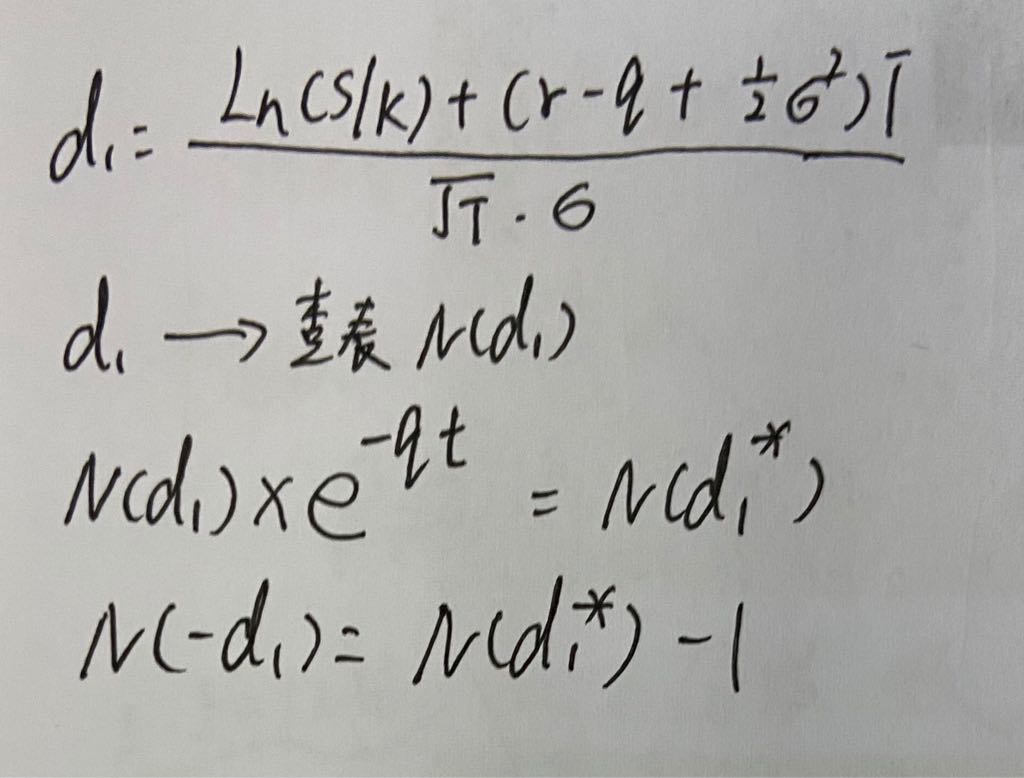 d₁ = (Ln(S/K) + (r - q + ½σ²)T) / (√T · σ)
d₁ → 查表 N(d₁)
N(d₁) × e^(-qt) = N(d₁*)
N(-d₁) = N(d₁*) - 1